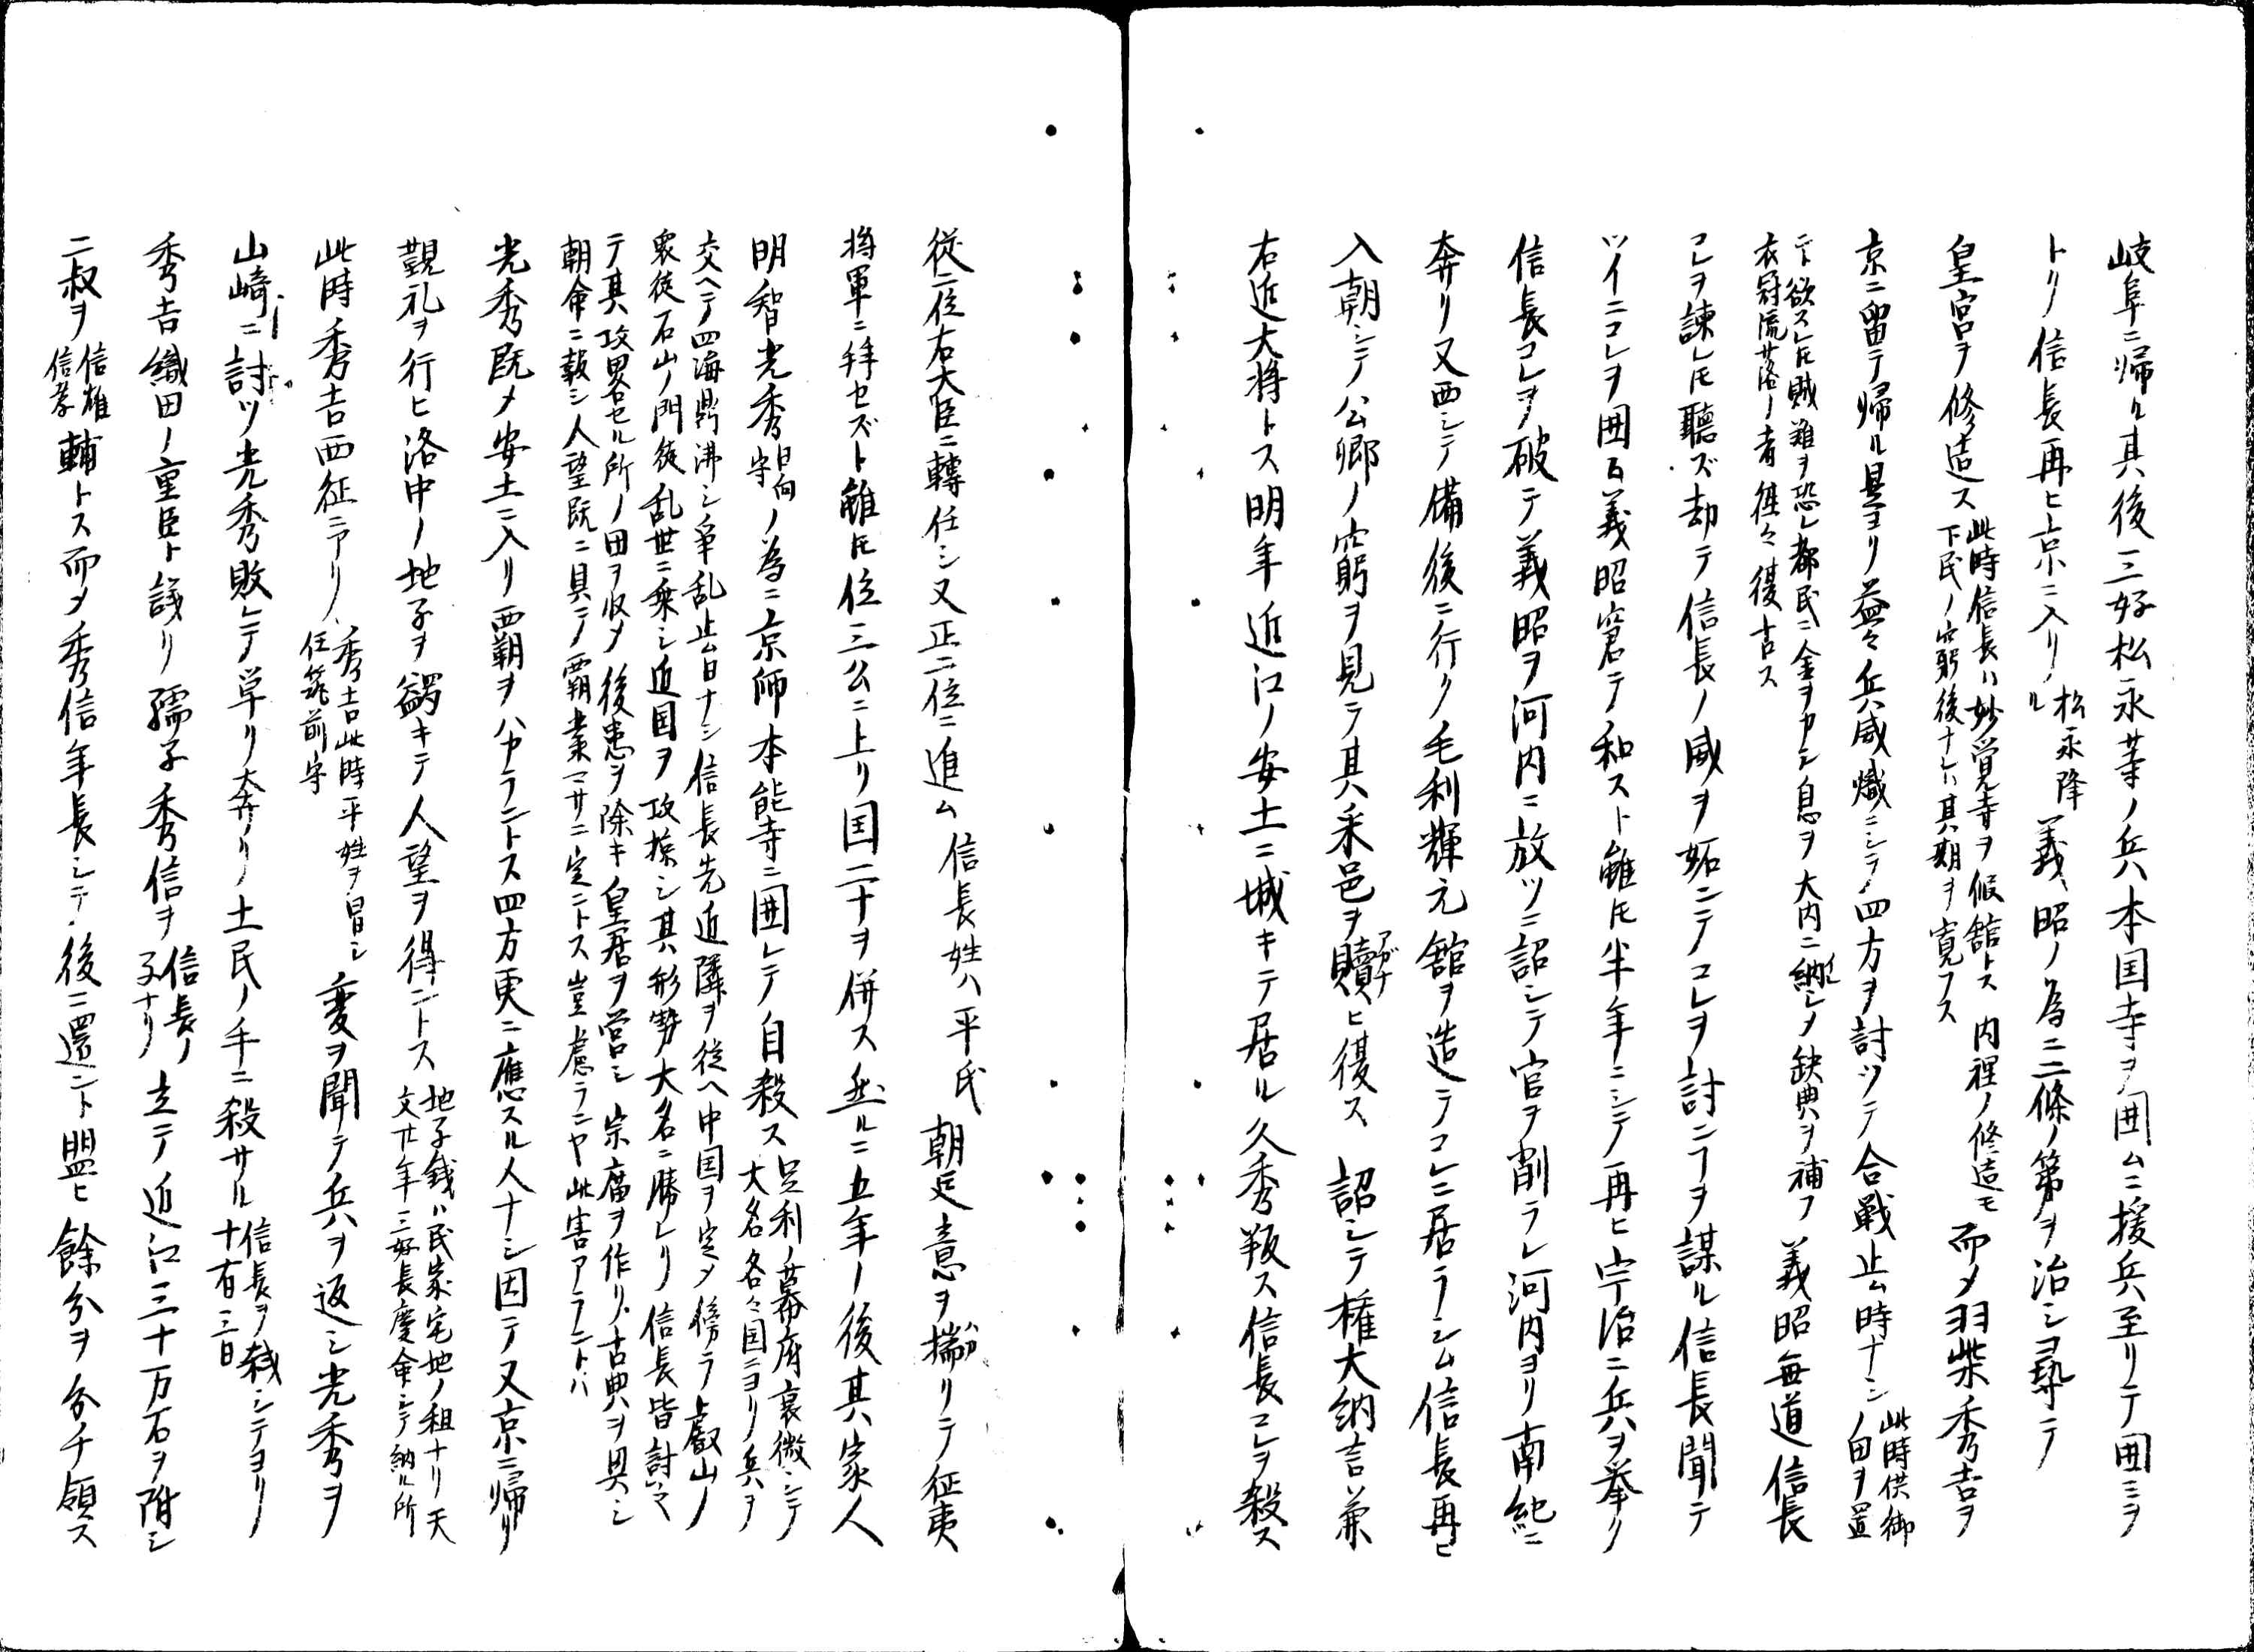 岐阜ニ帰ル其後三好松永等ノ兵本国寺ヲ囲ムニ援兵至リテ囲ミヲ
トク信長再ヒ京ニ入リ松永降ル義昭ノ為ニ二條ノ第ヲ治シヲ
皇宮ヲ修造ス此時信長ハ妙覚寺ヲ假舘トス内裡ノ修造モ下民ノ窮後ナレハ其期ヲ寛フス而メ羽柴秀吉ヲ
京ニ留テ帰ル是ヨリ益々兵威熾ニシテ四方ヲ討ツテ合戦止ム時ナシ此時供御ノ田ヲ置
ント欲スレ圧賊難ヲ恐レ都民ニ金ヲカシ息ヲ大内ニ納レシメ缺典ヲ補フ衣冠流落ノ者往々復古ス義昭毎道信長
コレヲ諫レ圧聽ズ却テ信長ノ威ヲ妬ンテコレヲ討ンフヲ謀ル信長聞テ
ツイニコレヲ囲ム義昭窘テ和スト雖圧半年ニシテ再ヒ宇治ニ兵ヲ挙ク
信長コレヲ破テ義昭ヲ河内ニ放ツ詔シテ官ヲ削ラレ河内ヨリ南紀ニ
奔リ又西シテ備後ニ行ク毛利輝元舘ヲ造テコレニ居ラシム信長再ヒ
入朝シテ公卿ノ窮ヲ見テ其采邑ヲ贖ヒ復ス詔シテ権大納言兼
右近大将トス明年近江ノ安土ニ城キテ居ル久秀叛ス信長コレヲ殺ス
従二位右大臣ニ轉任シ又正二位ニ進ム信長姓ハ平氏朝廷意ヲ揣リテ征夷
将軍ニ拜セズト雖圧位三公ニ上リ国二十ヲ併ス然ルニ五年ノ後其家人
明智光秀日向守ノ為ニ京師本能寺ニ囲レテ自殺ス足利ノ幕府衰微シテ大名各々国ニヨリ兵ヲ
交ヘテ四海鼎沸シ争乱止ム日ナシ信長先近隣ヲ従ヘ中国ヲ定メ傍ラ叡山ノ
衆徒石山ノ門徒乱世ニ乗シ近国ヲ攻掠シ其形勢大名ニ勝レリ信長皆討
テ其攻畧セル所ノ田ヲ収メ後患ヲ除キ皇居ヲ営シ宗廟ヲ作リ古典ヲ興シ
朝命ニ報シ人望既ニ具シテ覇業マサニ定ントス豈慮ランヤ此害アラントハ
光秀既メ安土ニ入リ西朝ヲハカラントス四方更ニ應スル人ナシ因テ又京ニ帰リ
覲礼ヲ行ヒ洛中ノ地子ヲ蠲キテ人望ヲ得ントス地子銭ハ民家宅地ノ租ナリ天文廿年三好長慶命シテ納ル所
此時秀吉西征ニアリ秀吉此時平姓ヲ冒シ任筑前守変ヲ聞テ兵ヲ返シ光秀ヲ
山崎ニ討ツ光秀敗レテ単リ奔リ土民ノ手ニ殺サル信長ヲ弑シテヨリ十有三日
秀吉織田ノ重臣ト議リ孺子秀信ヲ信長ノ子ナリ立テ近江三十万石ヲ附シ
二叔ヲ信雄信孝輔トス而メ秀信年長シテ後ニ還ント盟ヒ餘分ヲ分チ領ス